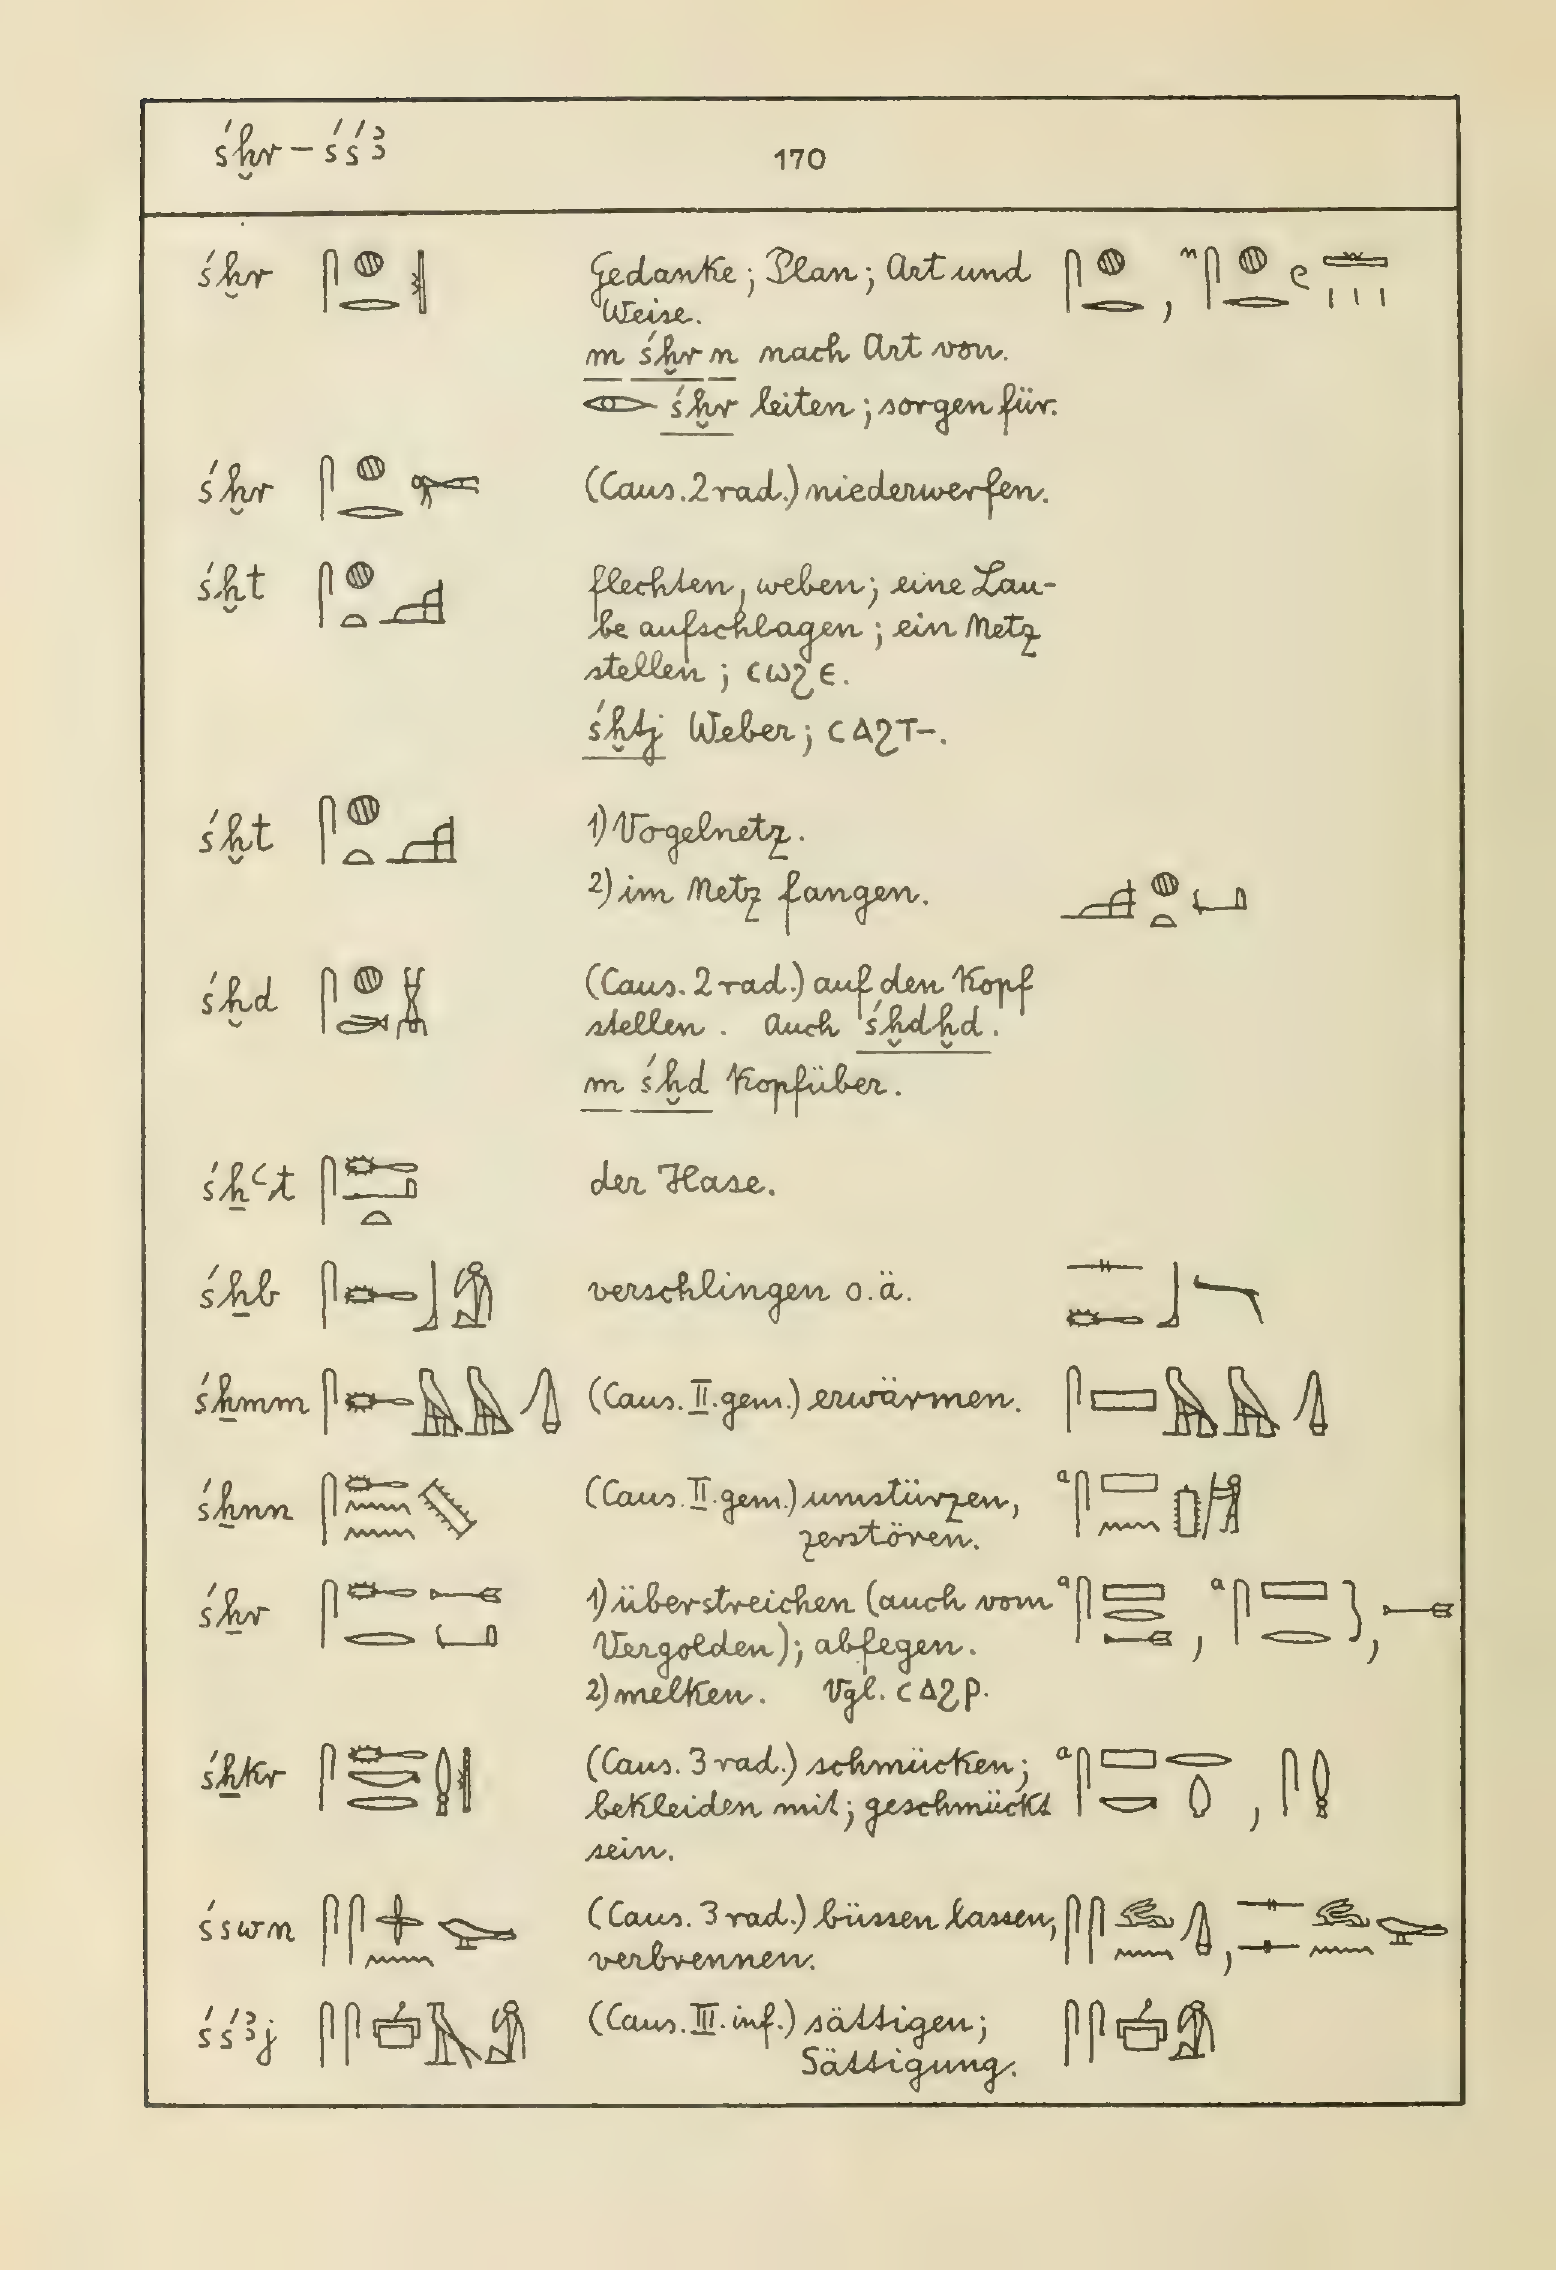 śḫr – śśꜣ 170
śḫr Gedanke; Plan; Art und
Weise.
m śḫr n nach Art von.
śḫr leiten; sorgen für.
śḫr (Caus. 2 rad.) niederwerfen.
śḫt flechten, weben; eine Lau-
be aufschlagen; ein Netz
stellen; ⲥⲱϩⲉ.
śḫtj Weber; ⲥⲁϩⲧ-.
śḫt 1) Vogelnetz.
2) im Netz fangen.
śḫd (Caus. 2 rad.) auf den Kopf
stellen. Auch śḫdḫd.
m śḫd Kopfüber.
śẖꜥt der Hase.
śẖb verschlingen o.ä.
śẖmm (Caus. II. gem.) erwärmen.
śẖnn (Caus. II. gem.) umstürzen, a
zerstören.
śẖr 1) überstreichen (auch vom a , a },
Vergolden); abfegen.
2) melken. Vgl. ⲥⲁϩⲣ.
śẖkr (Caus. 3 rad.) schmücken; a ,
bekleiden mit; geschmückt
sein.
śswn (Caus. 3 rad.) büssen lassen, ,
verbrennen.
śśꜣj (Caus. III. inf.) sättigen;
Sättigung.